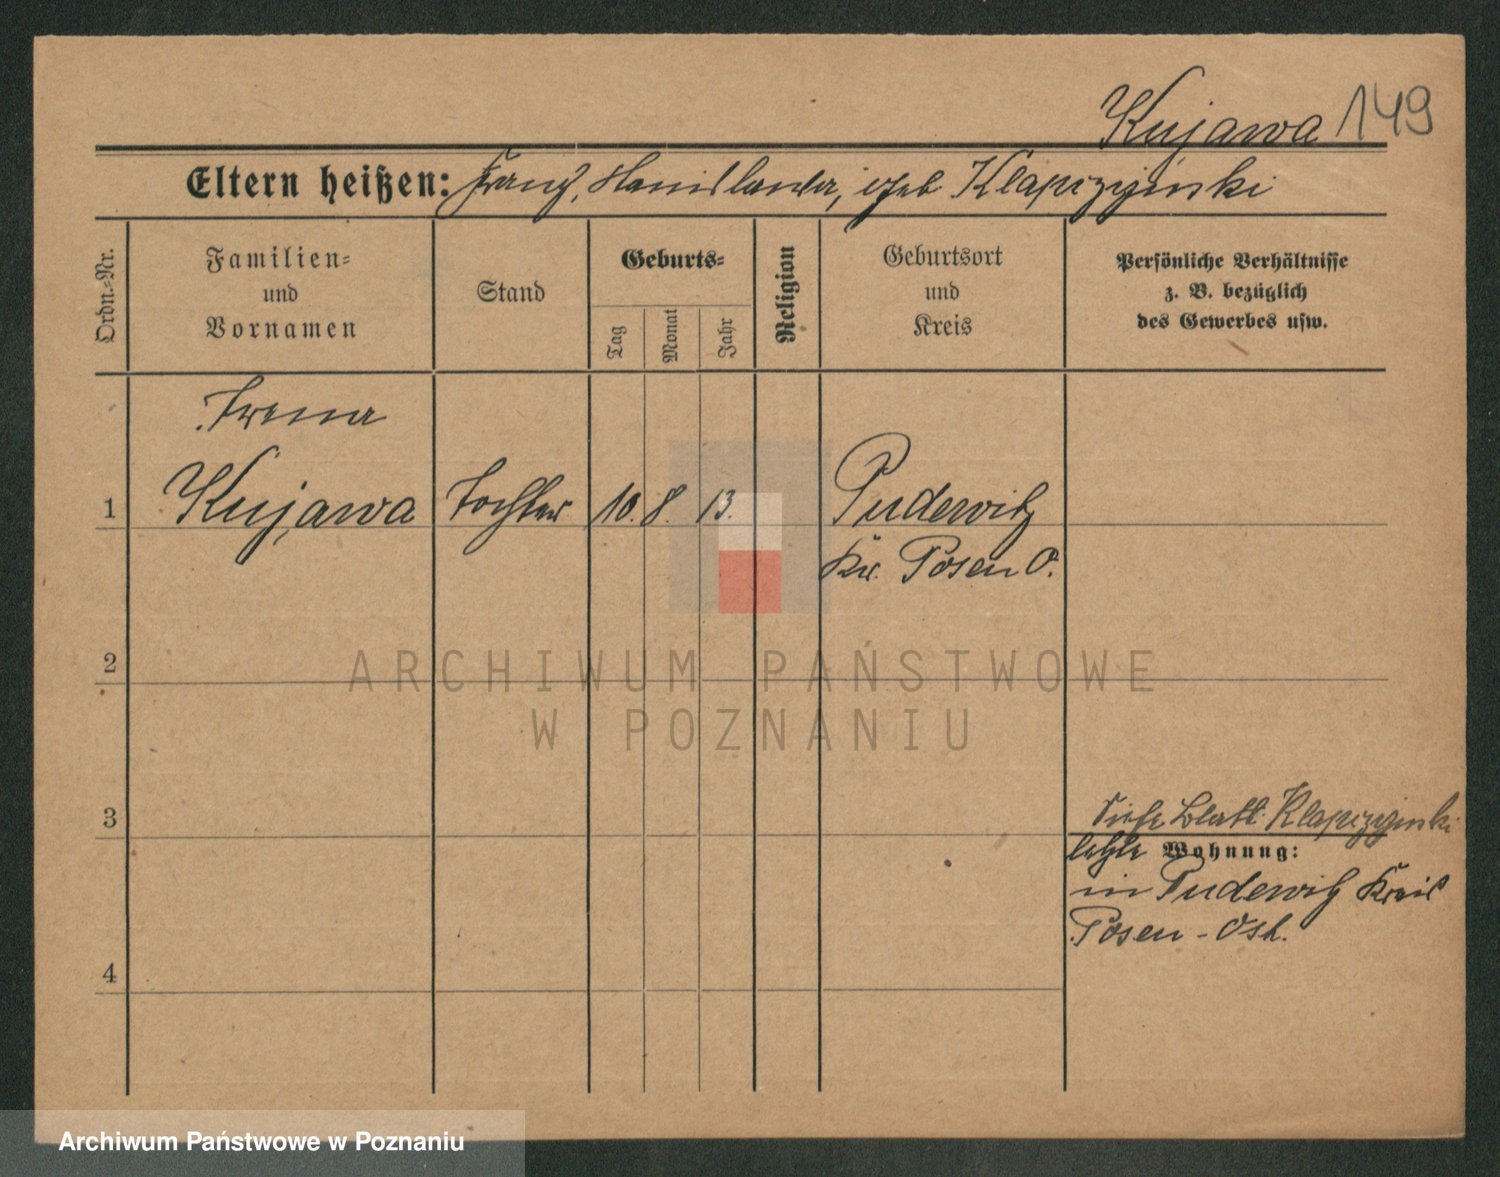 Kujawa 149
Eltern heißen: Franz, Stanislawa, geb Klapczyinski
Ordn.=Nr.
Familien=
und
Vornamen
Stand
Geburts=
Tag
Monat
Jahr
Religion
Geburtsort
und
Kreis
Persönliche Verhältnisse
z. B. bezüglich
des Gewerbes usw.
Irena
1 Kujawa Tochter 10. 8. 13. Pudewitz
Kr. Posen O.
2
ARCHIWUM PAŃSTWOWE
W POZNANIU
3
Siehe Blatt Klapczyinski
letzte Wohnung:
in Pudewitz Kreis
Posen - Ost.
4
Archiwum Państwowe w Poznaniu